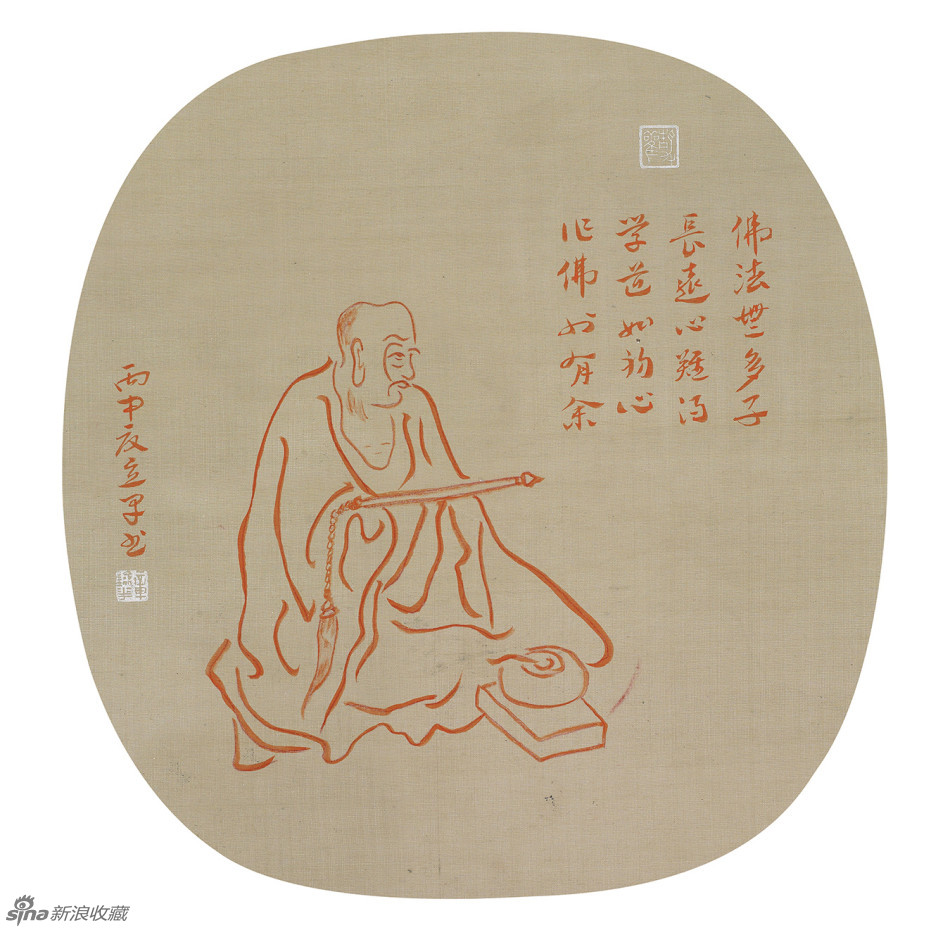 佛法無多子
長遠心難得
学道如初心
作佛有余
丙申夏立书
sina新浪收藏